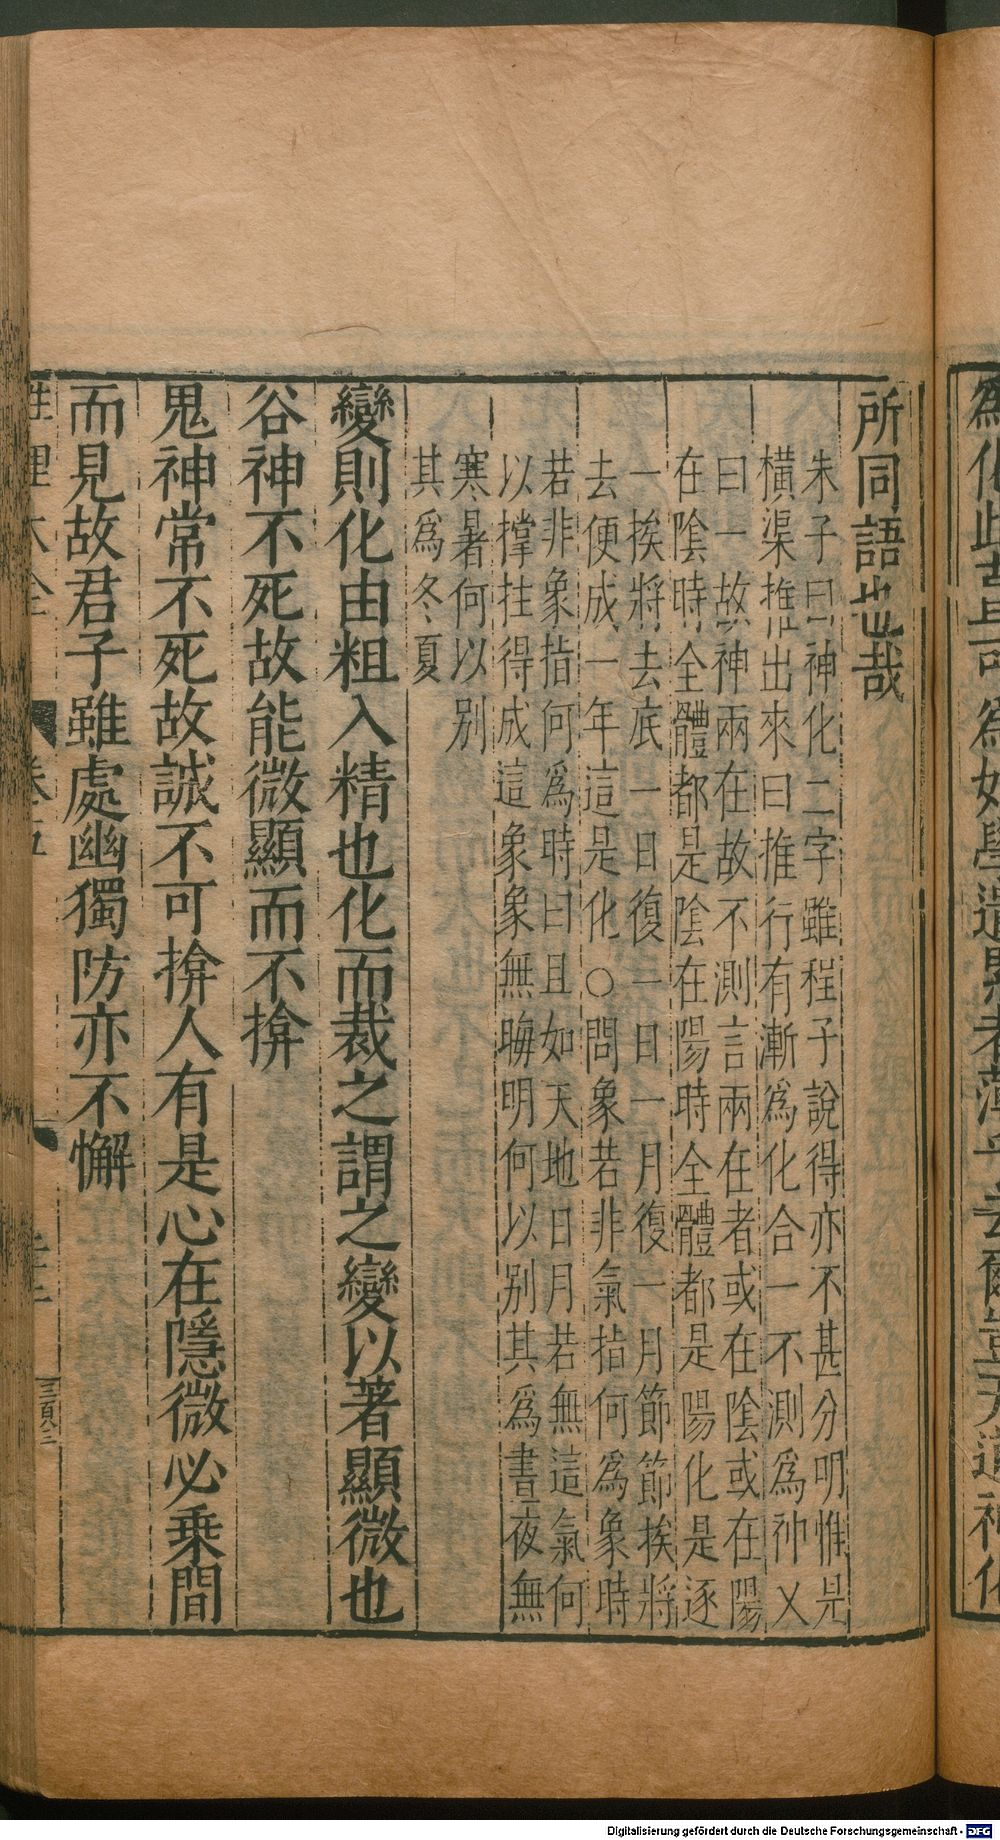 所同語也哉
朱子曰神化二字雖程子說得亦不甚分明惟是
橫渠推出來曰推行有漸爲化合一不測爲神又
曰一故神兩在故不測言兩在者或在陰或在陽
在陰時全體都是陰在陽時全體都是陽化是逐
一挨將去底一日復一日一月復一月節節挨將
去便成一年這是化○問象若非氣指何爲象時
若非象指何爲時曰且如天地日月若無這氣何
以撑拄得成這象象無晦明何以别其爲晝夜無
寒暑何以别
其爲冬夏
變則化由粗入精也化而裁之謂之變以著顯微也
谷神不死故能微顯而不揜
鬼神常不死故誠不可揜人有是心在隱微必乗間
而見故君子雖處幽獨防亦不懈
性理大全 卷五
三百八三
Digitalisierung gefördert durch die Deutsche Forschungsgemeinschaft - DFG